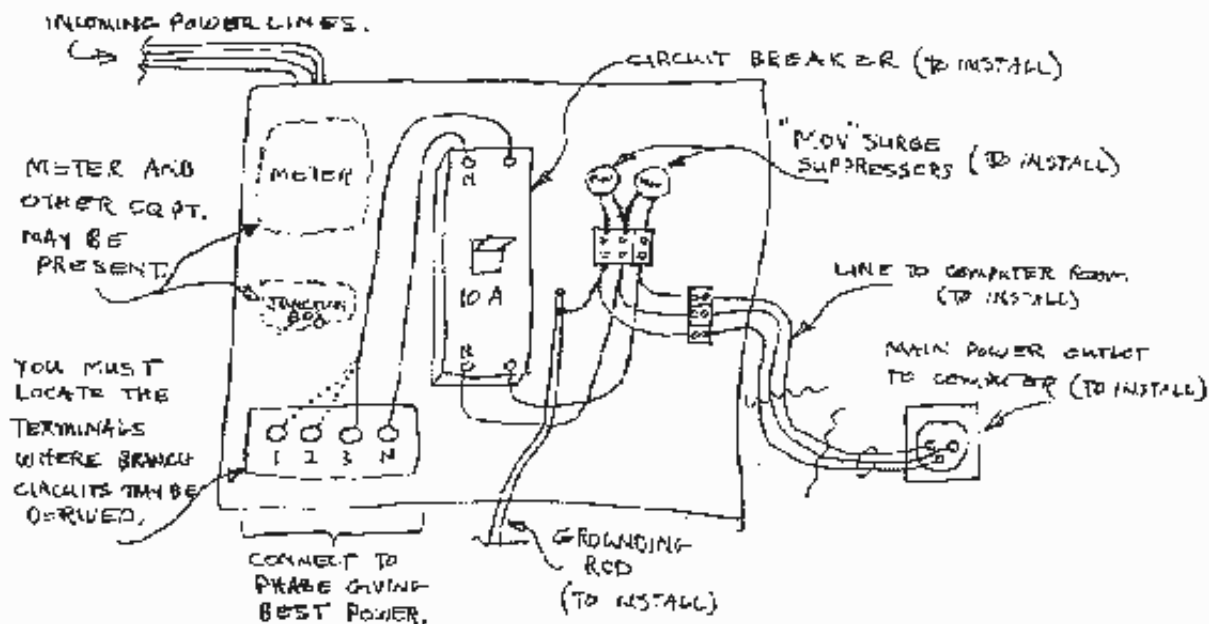 INCOMING POWER LINES.
CIRCUIT BREAKER (TO INSTALL)
"MOV" SURGE
SUPPRESSORS (TO INSTALL)
METER AND
OTHER EQPT.
MAY BE
PRESENT.
METER
JUNCTION
BOX
N
10 A
N
LINE TO COMPUTER ROOM.
(TO INSTALL)
MAIN POWER OUTLET
TO COMPUTER (TO INSTALL)
YOU MUST
LOCATE THE
TERMINALS
WHERE BRANCH
CIRCUITS MAY BE
DERIVED.
1 2 3 N
CONNECT TO
PHASE GIVING
BEST POWER.
GROUNDING
ROD
(TO INSTALL)